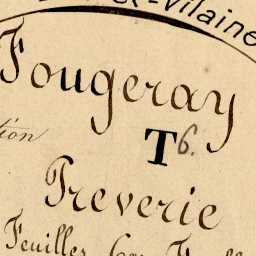 -Vilaine
Fougeray
tion
T 6.
Treverie
Feuilles